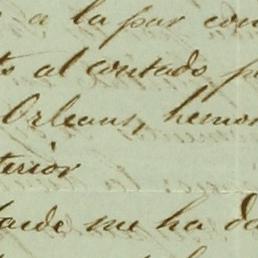 a la par con
ts al contado p
Orleans, hemos
terior
tarde me ha da